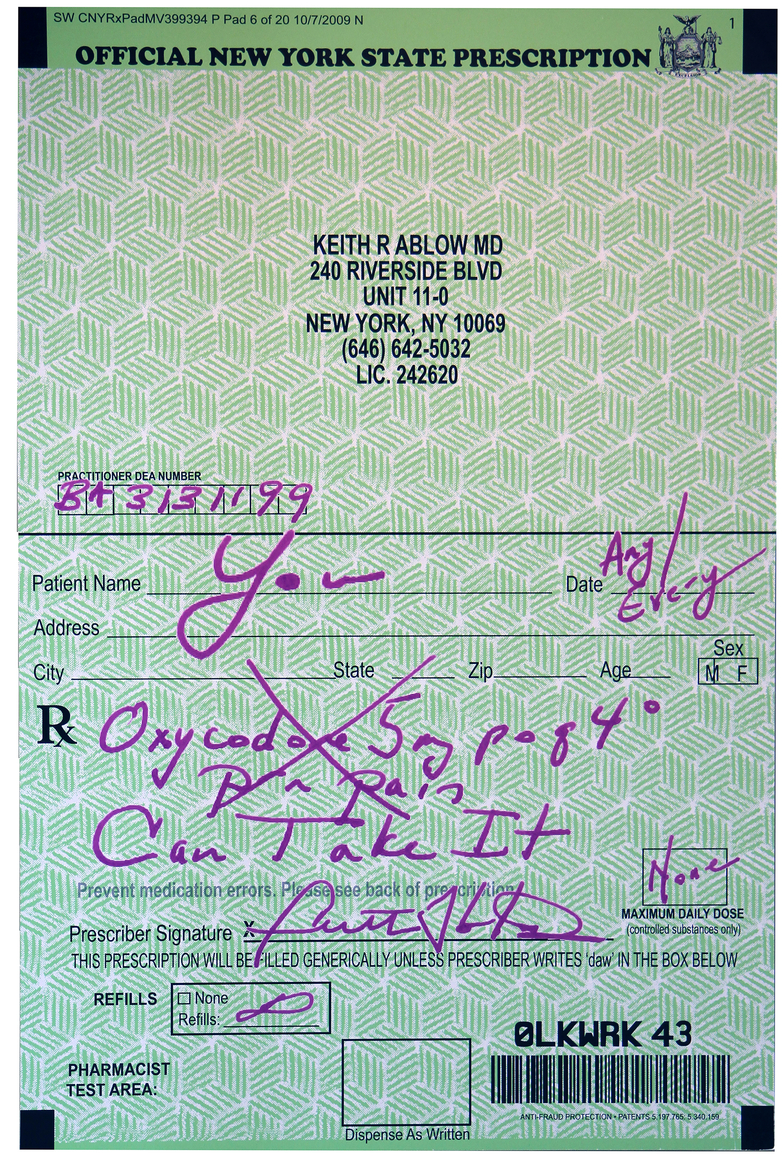 SW CNYRxPadMV399394 P Pad 6 of 20 10/7/2009 N
1
OFFICIAL NEW YORK STATE PRESCRIPTION
EXCELSIOR
KEITH R ABLOW MD
240 RIVERSIDE BLVD
UNIT 11-0
NEW YORK, NY 10069
(646) 642-5032
LIC. 242620
PRACTITIONER DEA NUMBER
BA3131199
Patient Name You Date Any/
Every
Address
Sex
City State Zip Age M F
Rx Oxycodone 5mg po q 4°
prn pain
Can Take It
Prevent medication errors. Please see back of prescription
None
MAXIMUM DAILY DOSE
(controlled substances only)
Prescriber Signature X
THIS PRESCRIPTION WILL BE FILLED GENERICALLY UNLESS PRESCRIBER WRITES 'daw' IN THE BOX BELOW
REFILLS None
Refills:
0LKWRK 43
PHARMACIST
TEST AREA:
ANTI-FRAUD PROTECTION • PATENTS 5,197,765; 5,340,159
Dispense As Written